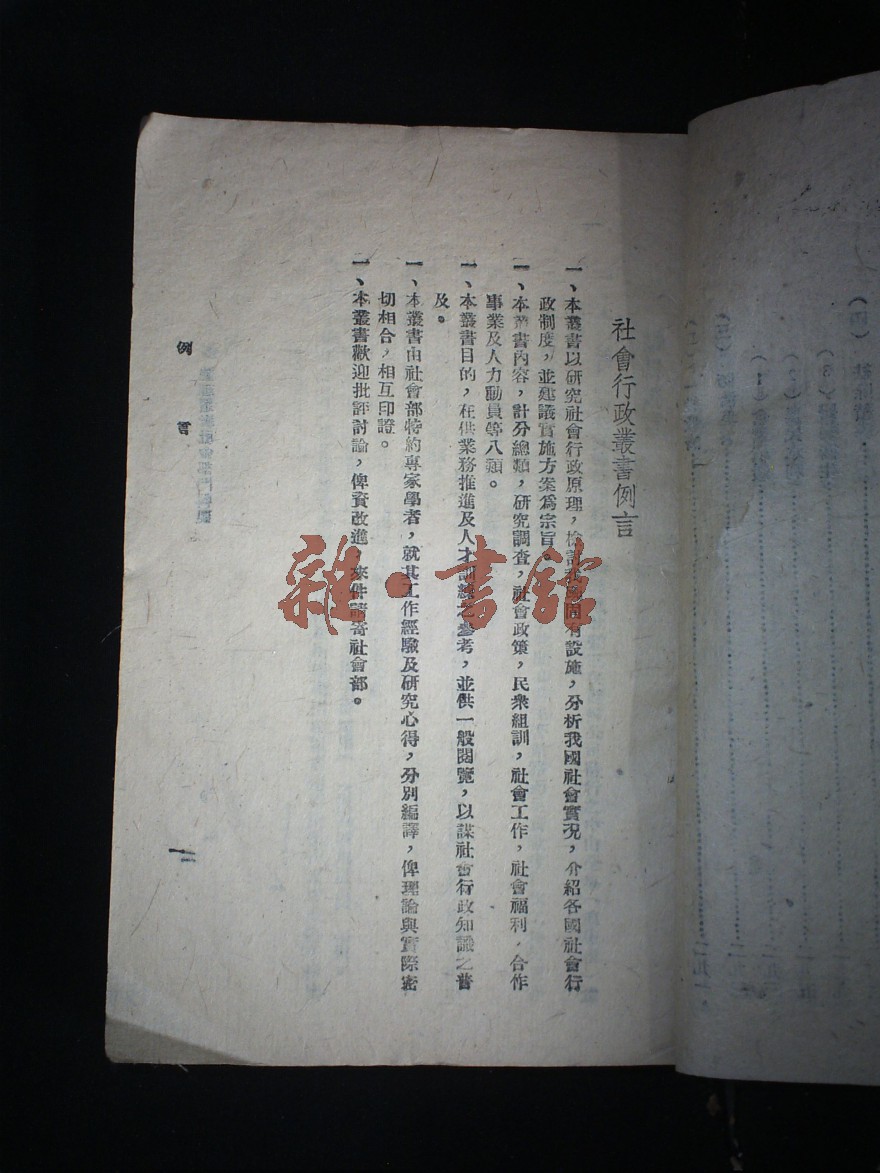 社會行政叢書例言
一、本叢書以研究社會行政原理，檢討我國固有設施，分析我國社會實況，介紹各國社會行
政制度，並建議實施方案爲宗旨。
一、本叢書內容，計分總類，研究調查，社會政策，民衆組訓，社會工作，社會福利，合作
事業及人力動員等八類。
一、本叢書目的，在供業務推進及人才訓練之參考，並供一般閱覽，以謀社會行政知識之普
及。
一、本叢書由社會部特約專家學者，就其工作經驗及研究心得，分別編譯，俾理論與實際密
切相合，相互印證。
一、本叢書歡迎批評討論，俾資改進，來件請寄社會部。
例言
雜·書館